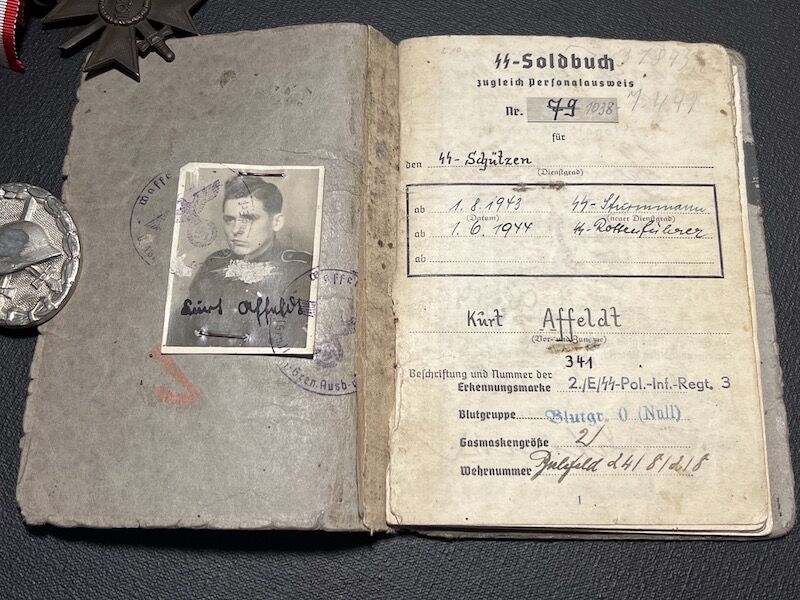 Kurt Affeldt
Waffen
SS-Soldbuch
zugleich Personalausweis
Nr. 79 1038
für
den SS-Schützen
(Dienstgrad)
ab 1.8.1943 SS-Sturmmann
(Datum) (neuer Dienstgrad)
ab 1.6.1944 SS-Rottenführer
ab
Kurt Affeldt
(Vor- und Zuname)
341
Beschriftung und Nummer der
Erkennungsmarke 2./E/SS-Pol.-Inf.-Regt. 3
Blutgruppe Blutgr. 0 (Null)
Gasmaskengröße 2
Wehrnummer 24/8/2/8
1